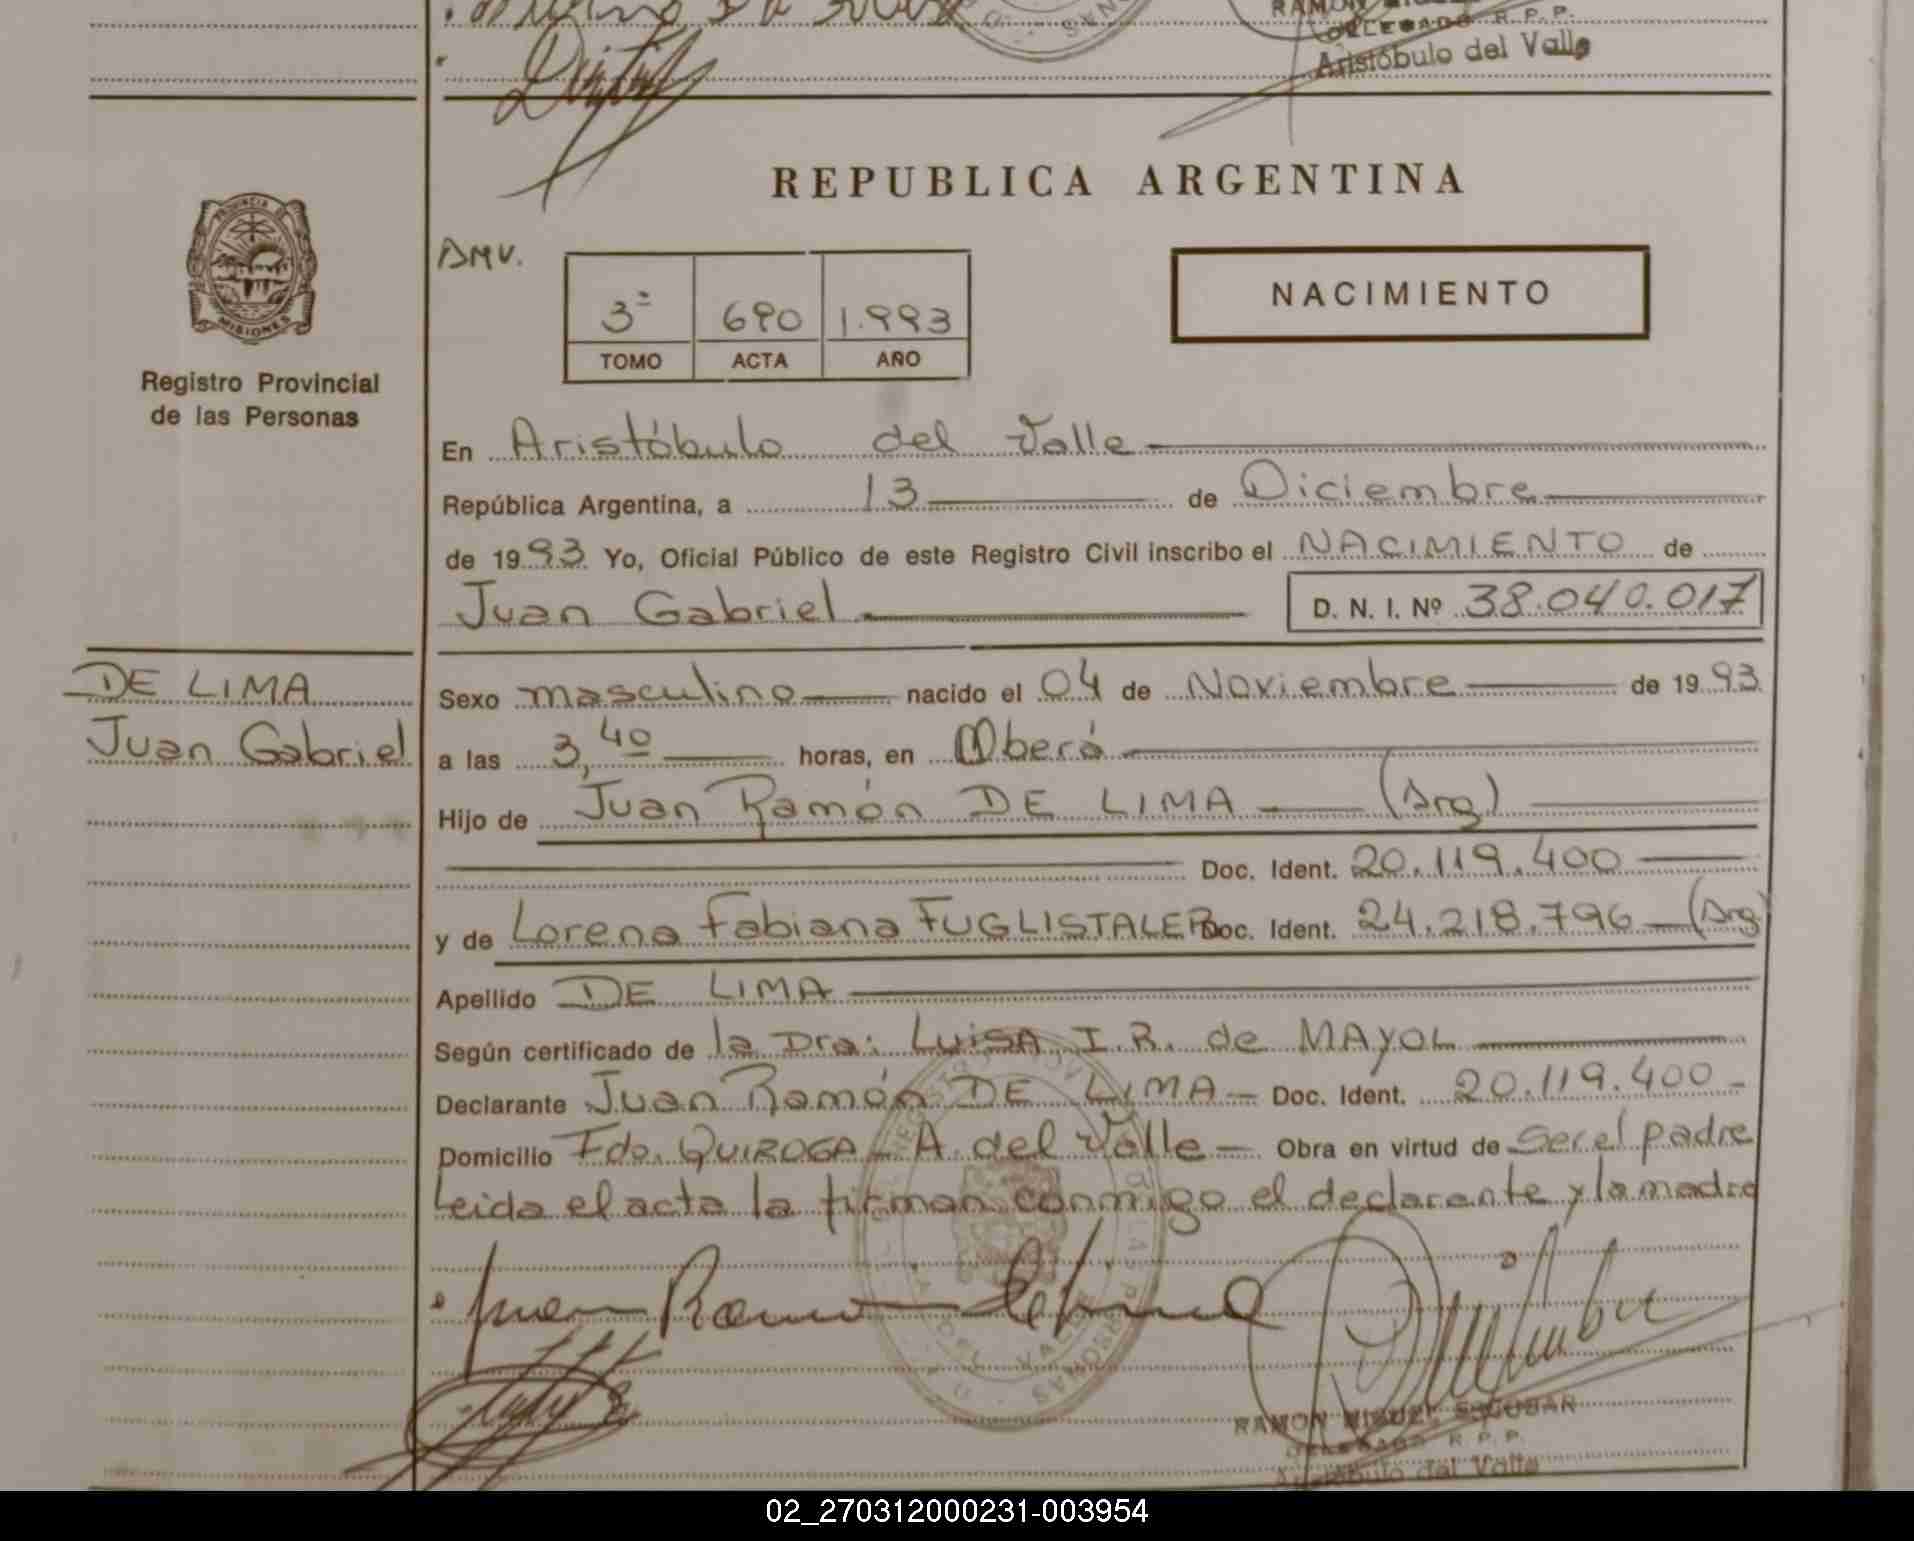 RAMON
DELEGADO R. P. P.
Aristóbulo del Valle
REPUBLICA ARGENTINA
PROVINCIA DE
MISIONES
Registro Provincial
de las Personas
3º 690 1.993
TOMO ACTA AÑO
NACIMIENTO
En Aristóbulo del Valle
República Argentina, a 13 de Diciembre
de 1993 Yo, Oficial Público de este Registro Civil inscribo el NACIMIENTO de
Juan Gabriel D. N. I. Nº 38.040.017
DE LIMA
Juan Gabriel
Sexo masculino nacido el 04 de Noviembre de 1993
a las 3,40 horas, en Oberá
Hijo de Juan Ramón DE LIMA (Arg)
Doc. Ident. 20.119.400
y de Lorena Fabiana FUGLISTALER Doc. Ident. 24.218.796 (Arg)
Apellido DE LIMA
Según certificado de la Dra: LUISA I.R. de MAYOL
Declarante Juan Ramón DE LIMA Doc. Ident. 20.119.400
Domicilio Fdo. QUIROGA - A. del Valle Obra en virtud de ser el padre
Leida el acta la firman conmigo el declarante y la madre
RAMON MIGUEL ESCOBAR
DELEGADO R. P. P.
Aristóbulo del Valle
02_270312000231-003954